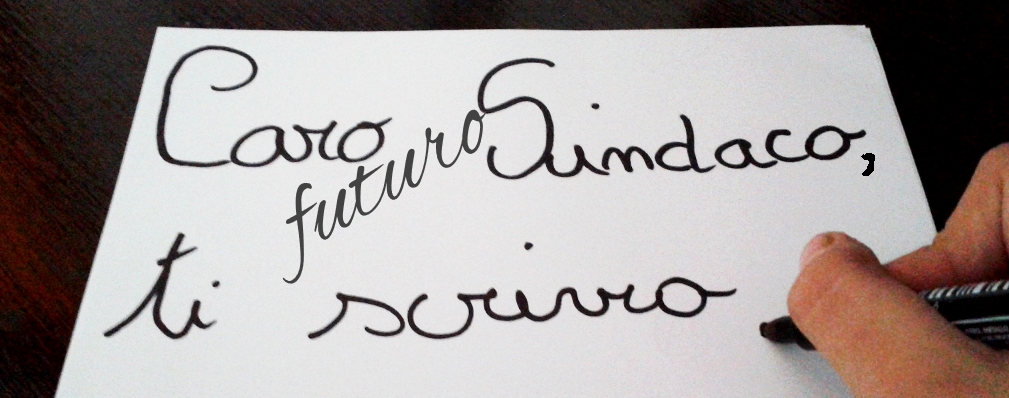 Caro futuro Sindaco,
ti scrivo